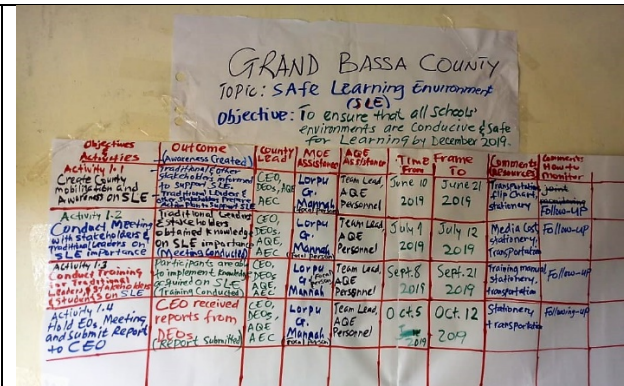 GRAND BASSA COUNTY
TOPIC: SAfe Learning Environment
(SLE)
Objective: To ensure that all schools'
environments are conducive & safe
for Learning by December 2019.
Objectives
Activities
Outcome
(Awareness Created)
County
Lead
MOE
Assistance
AQE
Assistance
Time Frame
From To
Comments
(Resources)
Comments
How to
monitor
Activity 1.1
Create County
mobilization and
Awareness on SLE
Traditional & other
stakeholders informed
to support SLE.
Traditional Leaders &
other stakeholders
Support SLE
CEO,
DEOs, AQE
AEC
Lorpu
G.
Mannah
Team Lead,
AQE
Personnel
June 10
2019
June 21
2019
Transportation
flip chart,
stationery
Follow-UP
Activity 1.2
Conduct Meeting
with stakeholders &
Traditional Leaders on
SLE importance
Traditional Leaders
& stakeholders
obtained knowledge
on SLE importance
(Meeting Conducted)
CEO,
DEOs,
AQE,
AEC
Lorpu
G.
Mannah
(focal person)
Team Lead,
AQE
Personnel
July 1
2019
July 12
2019
Media Cost,
stationery,
transportation
Follow-UP
Activity 1.3
Conduct Training
for Traditional
Leaders, stakeholders
& students on SLE
Participants are able
to implement knowledge
acquired on SLE
(Training Conducted)
CEO,
DEOs,
AQE
AEC
Lorpu
G.
Mannah
Team Lead,
AQE
Personnel
Sept. 8
2019
Sept. 21
2019
Training manual
stationery,
transportation
Follow-up
Activity 1.4
Hold EOs, Meeting
and submit Report
to CEO
CEO received
reports from
DEOs,
(REPORT Submitted)
CEO,
DEOs,
AQE
AEC
Lorpu
G.
Mannah
(focal person)
Team Lead,
AQE
Personnel
Oct 5
2019
Oct. 12
2019
Stationery
& transportation
Following-UP